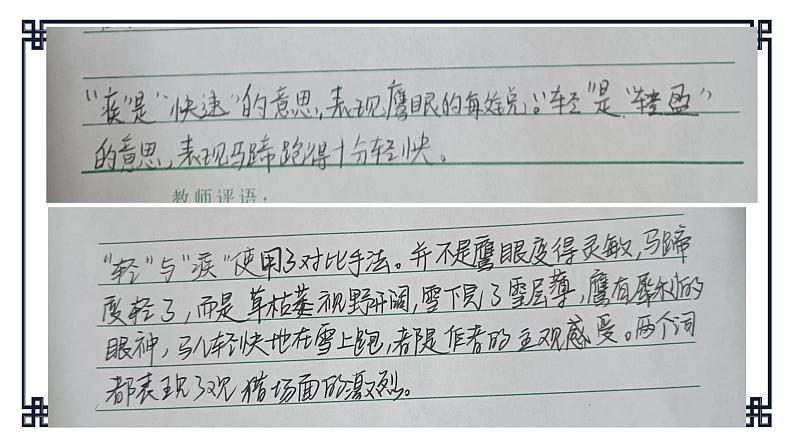 “疾”是“快速”的意思，表现鹰眼的每锐。“轻”是“轻盈”
的意思，表现马蹄跑得十分轻快。
教师评语：
“轻”与“疾”使用了对比手法。并不是鹰眼变得灵敏，马蹄
变轻了，而是草枯萎视野开阔，雪下完了雪层薄，鹰有犀利的
眼神，马儿轻快地在雪上跑，都是作者的主观感受。两个词
都表现了观猎场面的激烈。